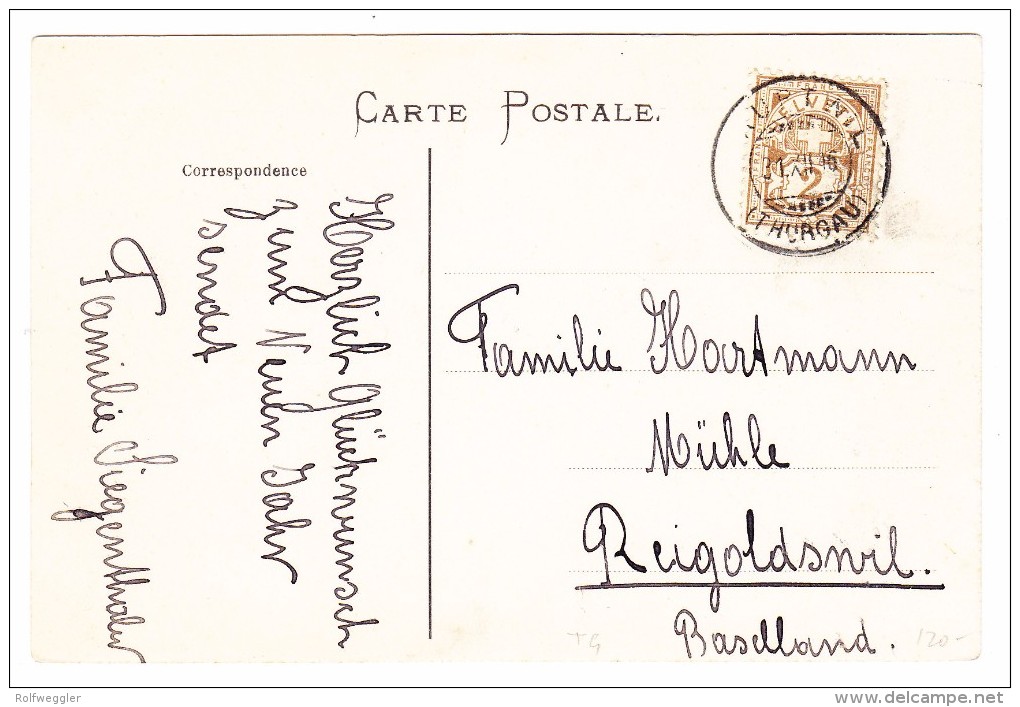 CARTE POSTALE.
Correspondence
Herzlich Glückwunsch
zum Neuen Jahr
sendet
Familie Siegenthaler
HELVETIA
FRANCO
2
(THURGAU)
Familie Hartmann
Mühle
Reigoldswil.
Baselland.
TG
120-
Rolfweggler
www.delcampe.net